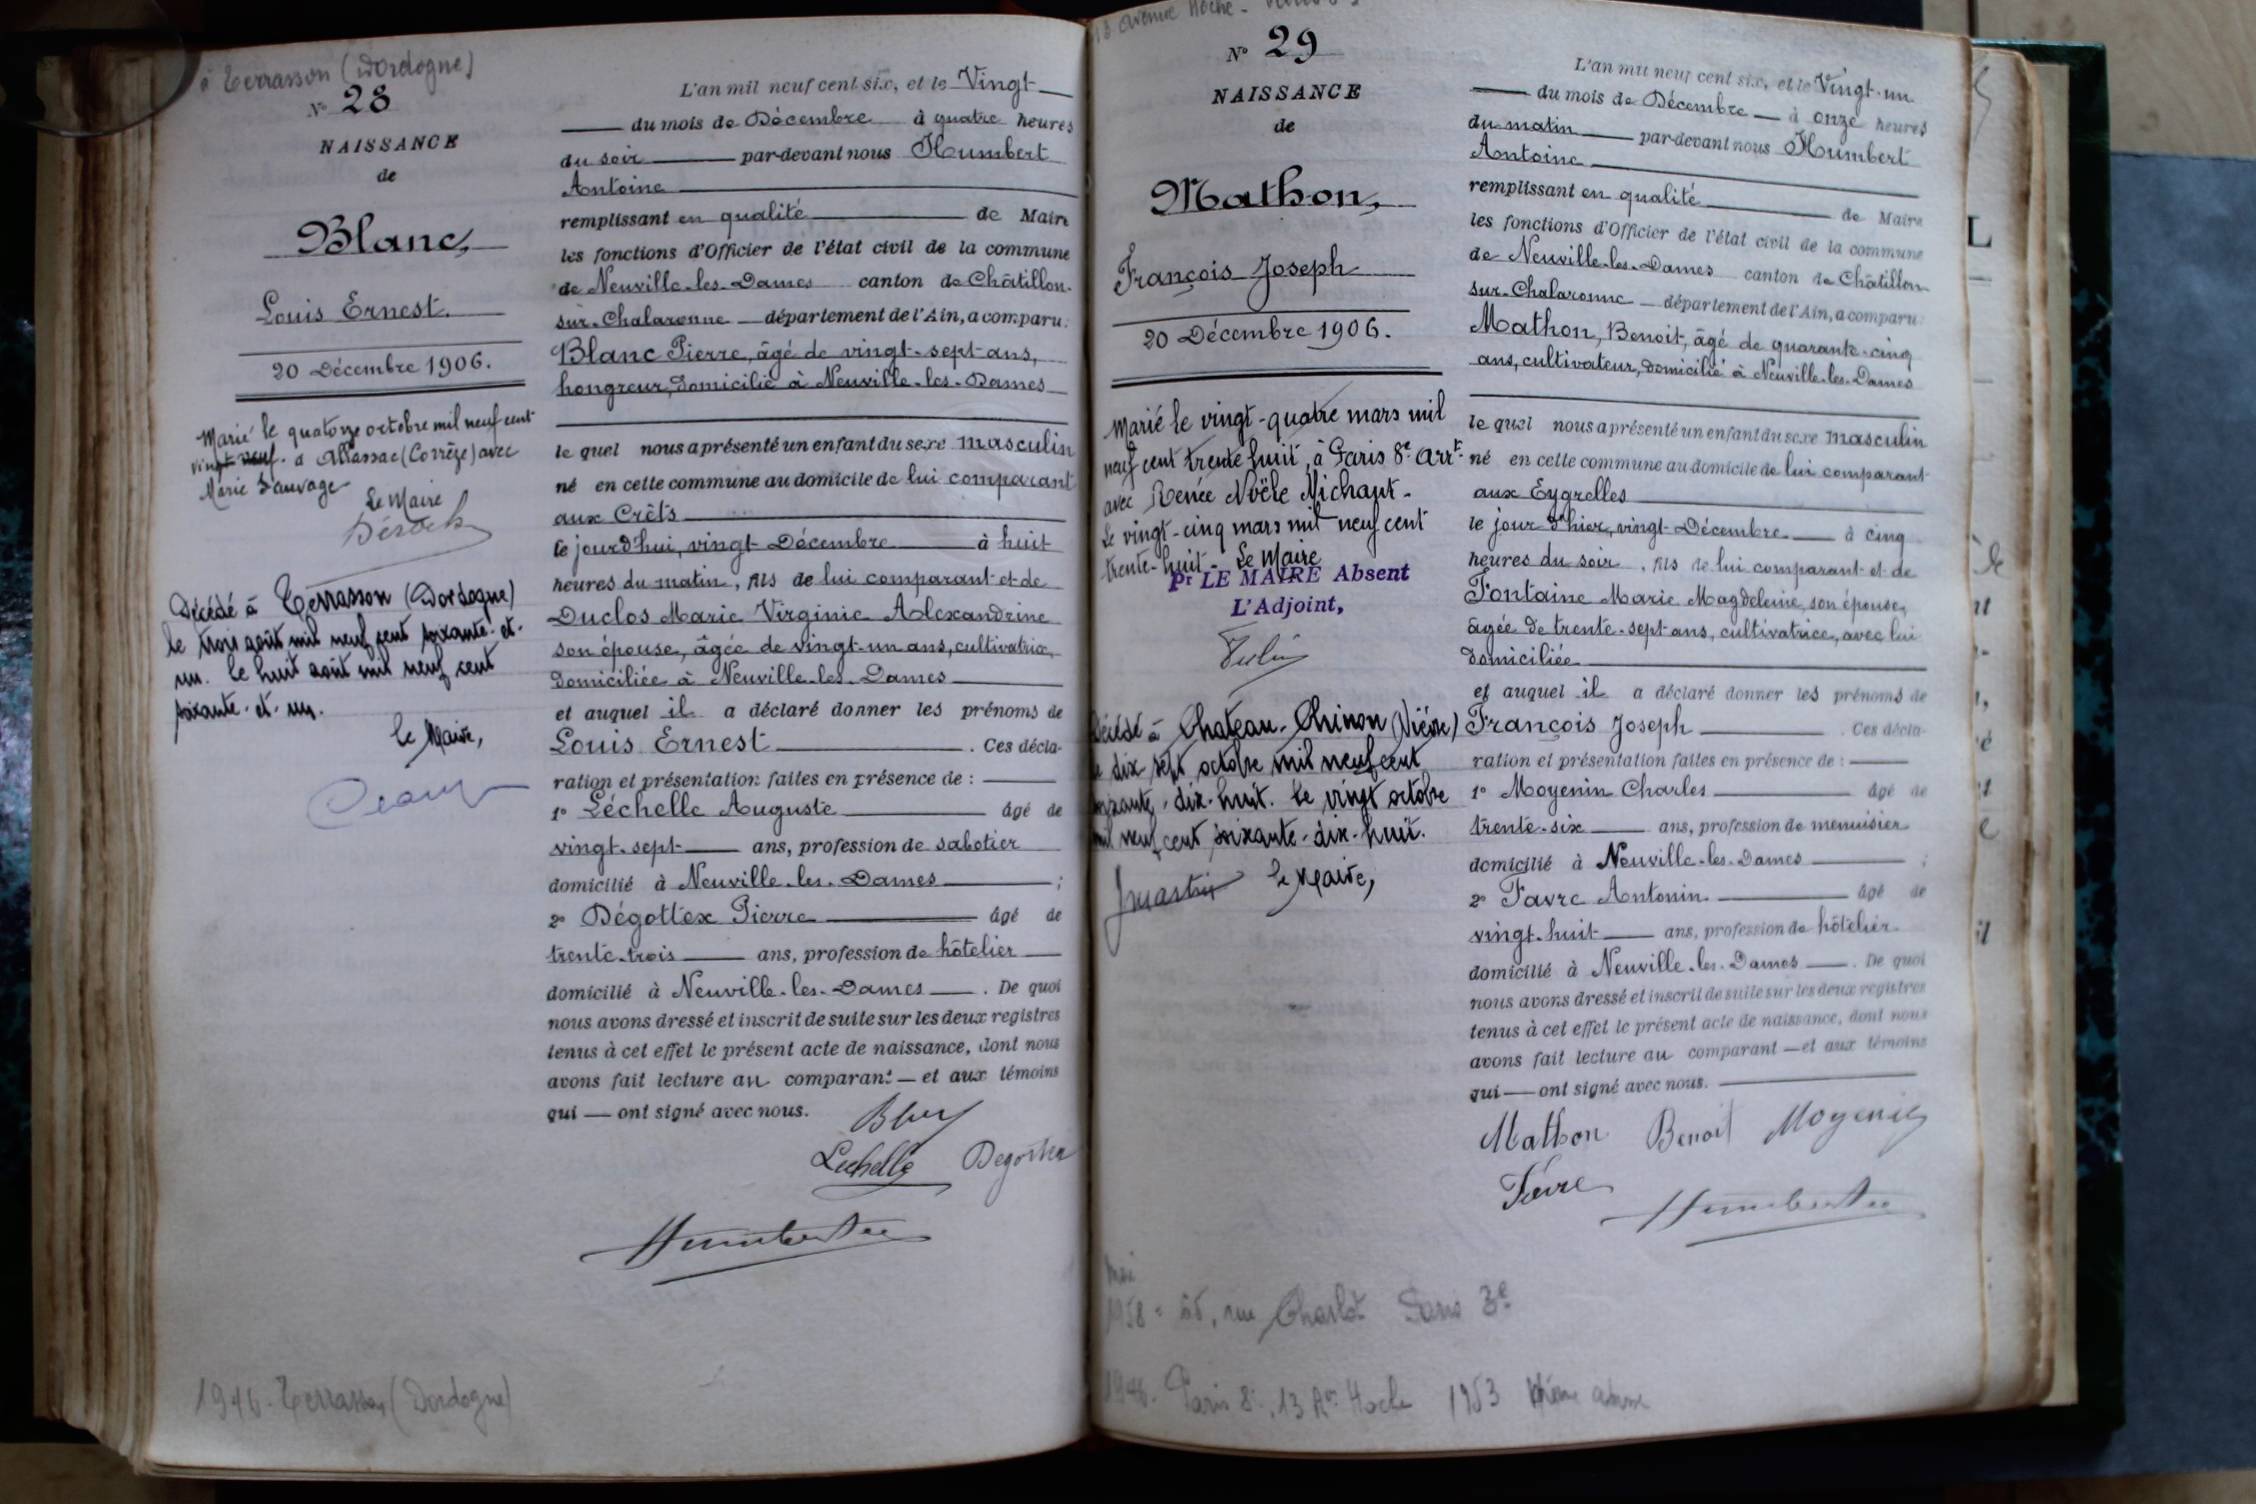 à Terrasson (Dordogne)
N° 28
NAISSANCE
de
Blanc,
Louis Ernest.
20 Décembre 1906.
Marié le quatorze octobre mil neuf cent
vingt neuf à Allassac (Corrèze) avec
Marie Sauvage
Le Maire
Décédé à Terrasson (Dordogne)
le trois août mil neuf cent soixante-et-
un. Le huit août mil neuf cent
soixante-et-un.
Le Maire,
1946. Terrasson (Dordogne)
L'an mil neuf cent six, et le Vingt
du mois de Décembre à quatre heures
du soir par-devant nous Humbert
Antoine
remplissant en qualité de Maire
les fonctions d'Officier de l'état civil de la commune
de Neuville-les-Dames canton de Châtillon-
sur-Chalaronne département de l'Ain, a comparu:
Blanc Pierre, âgé de vingt-sept ans,
hongreur, domicilié à Neuville-les-Dames
le quel nous a présenté un enfant du sexe masculin
né en cette commune au domicile de lui comparant
aux Crêts
le jourd'hui, vingt Décembre à huit
heures du matin, fils de lui comparant et de
Duclos Marie Virginie Alexandrine
son épouse, âgée de vingt-un ans, cultivatrice,
domiciliée à Neuville-les-Dames
et auquel il a déclaré donner les prénoms de
Louis Ernest . Ces décla-
ration et présentation faites en présence de :
1° Léchelle Auguste âgé de
vingt-sept ans, profession de sabotier
domicilié à Neuville-les-Dames ;
2° Dégottex Pierre âgé de
trente-trois ans, profession de hôtelier
domicilié à Neuville-les-Dames . De quoi
nous avons dressé et inscrit de suite sur les deux registres
tenus à cet effet le présent acte de naissance, dont nous
avons fait lecture au comparant — et aux témoins
qui — ont signé avec nous.
Lechelle Degottex
18 avenue Hoche -
N° 29
NAISSANCE
de
Mathon,
François Joseph
20 Décembre 1906.
Marié le vingt-quatre mars mil
neuf cent trente huit, à Paris 8e Arrt
avec Renée Noële Michaut.
Le vingt-cinq mars mil neuf cent
trente-huit. Le Maire
Pr LE MAIRE Absent
L'Adjoint,
Décédé à Chateau-Chinon (Nièvre)
le dix sept octobre mil neuf cent
soixante-dix-huit. Le vingt octobre
mil neuf cent soixante-dix-huit.
Le Maire,
L'an mil neuf cent six, et le Vingt-un
du mois de Décembre à onze heures
du matin par-devant nous Humbert
Antoine
remplissant en qualité de Maire
les fonctions d'Officier de l'état civil de la commune
de Neuville-les-Dames canton de Châtillon
sur-Chalaronne département de l'Ain, a comparu:
Mathon, Benoit, âgé de quarante-cinq
ans, cultivateur, domicilié à Neuville-les-Dames
le quel nous a présenté un enfant du sexe masculin
né en cette commune au domicile de lui comparant
aux Eygrelles
le jour d'hier, vingt Décembre à cinq
heures du soir, fils de lui comparant et de
Fontaine Marie Magdeleine, son épouse,
âgée de trente-sept ans, cultivatrice, avec lui
domiciliée
et auquel il a déclaré donner les prénoms de
François Joseph . Ces décla-
ration et présentation faites en présence de :
1° Moyenin Charles âgé de
trente-six ans, profession de menuisier
domicilié à Neuville-les-Dames ;
2° Favre Antonin âgé de
vingt-huit ans, profession de hôtelier
domicilié à Neuville-les-Dames . De quoi
nous avons dressé et inscrit de suite sur les deux registres
tenus à cet effet le présent acte de naissance, dont nous
avons fait lecture au comparant — et aux témoins
qui — ont signé avec nous.
Mathon Benoit Moyenin
Favre
mai
1958 - rue Charlot Paris 3e
1946. Paris 8e, 13 Av. Hoche 1953